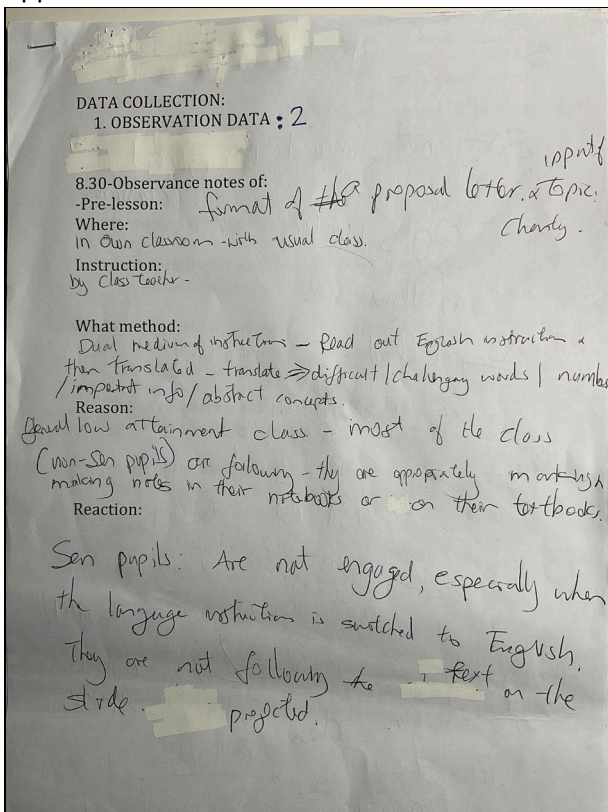 DATA COLLECTION:
1. OBSERVATION DATA : 2
8.30-Observance notes of:
-Pre-lesson: format of a proposal letter. & Topic:
Charity.
Where:
in own classroom - with usual class.
Instruction:
by Class teacher -
What method:
Dual medium of instructions - Read out English instruction &
then translated - translate ⇒ difficult / challenging words / number
/ important info / abstract concepts.
Reason:
General low attainment class - most of the class
(non-Sen pupils) are following - they are appropriately marking,
making notes in their notebooks or on their textbooks.
Reaction:
Sen pupils: Are not engaged, especially when
the language instruction is switched to English.
They are not following text on the
slide. projected.